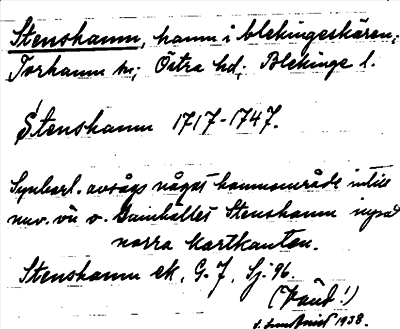 Stenshamn, hamn i blekingeskären,
Torhamn sn; Östra hd; Blekinge l.
Stenshamn 1717-1747.
Synbarl. avsågs något hamnområde intill
nuv. Stenshamn
norra kartkanten.
Stenshamn ek. G. J. Sj. 96.
(Vänd!)
1938.